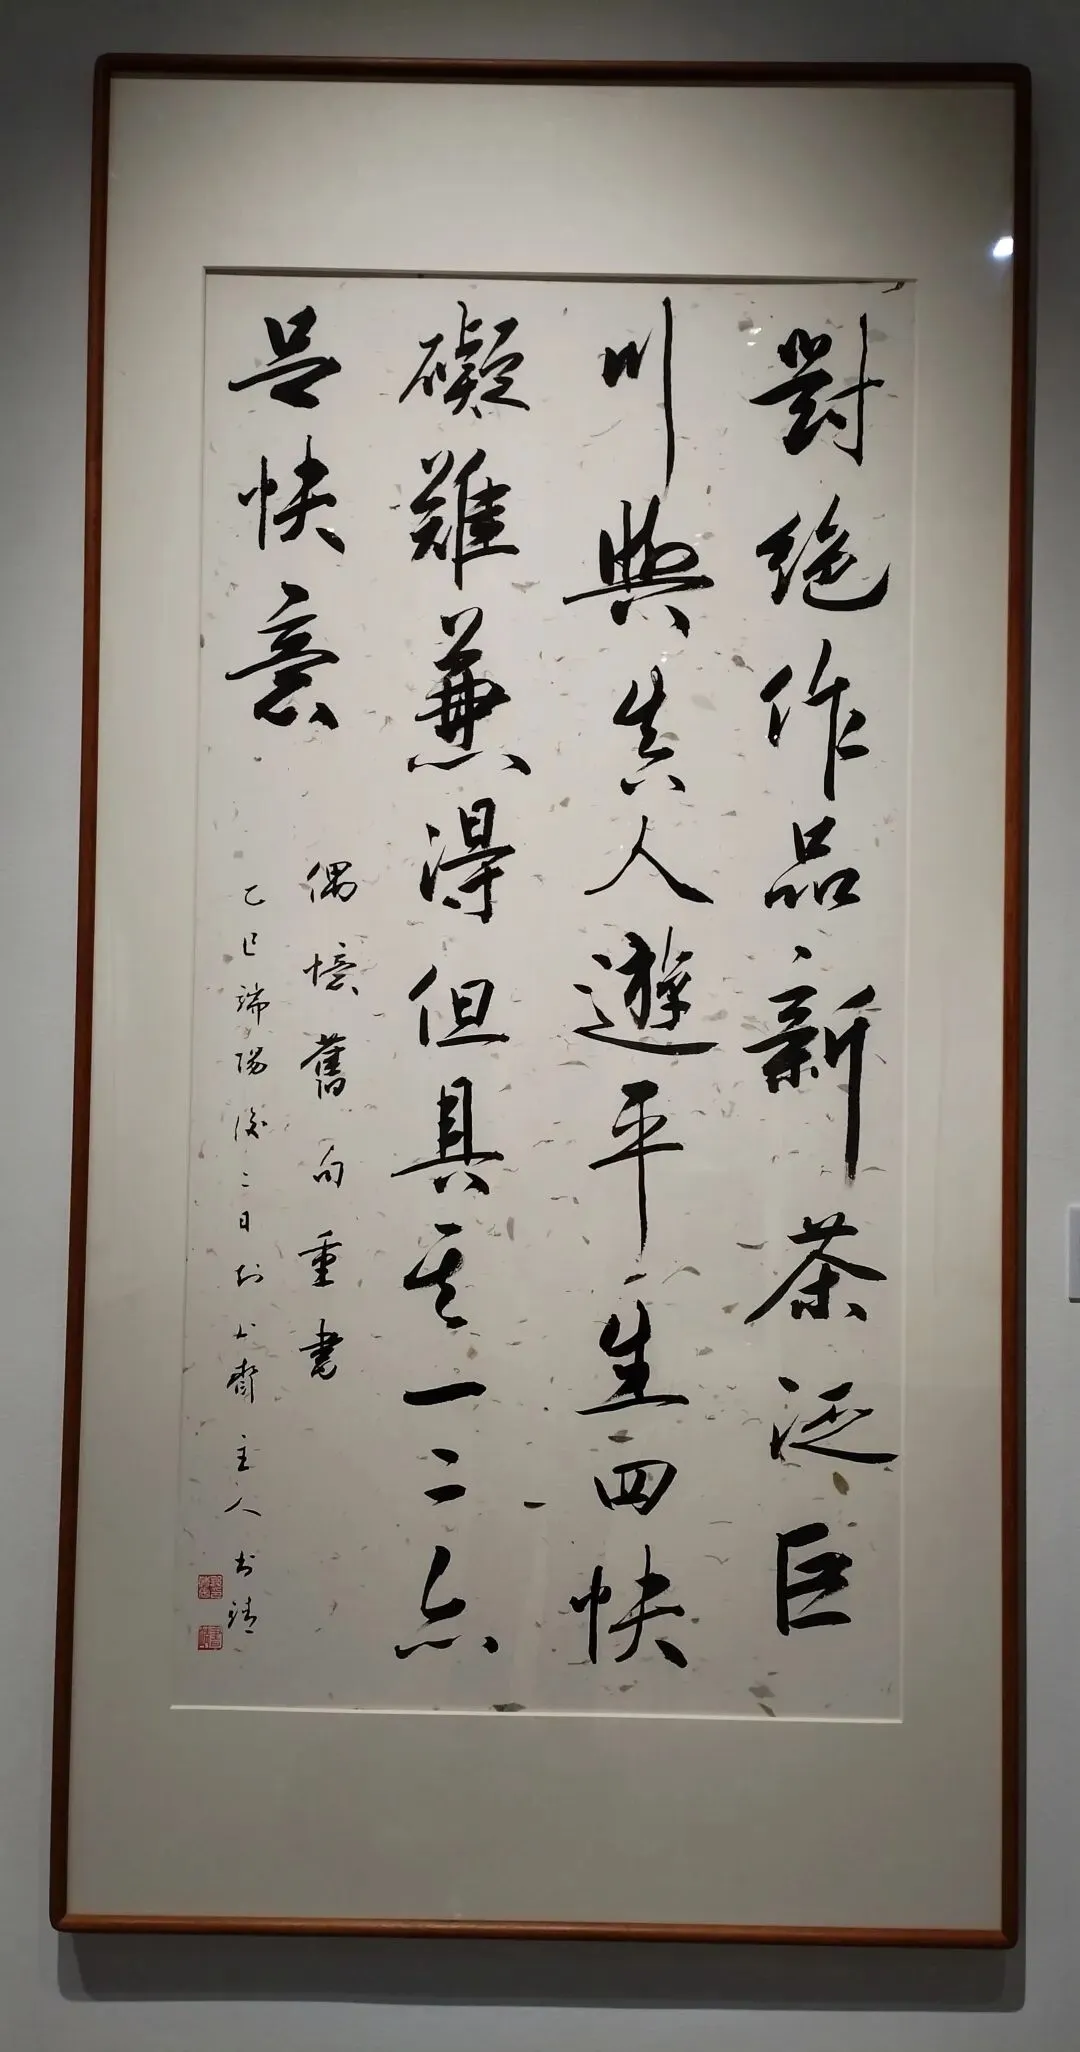 對絕作品新茶泛巨
川與真人遊平生四快
礙難兼得但具其一二亦
足快意
偶憶舊句重書
乙巳端陽後二日於大齋主人書靖